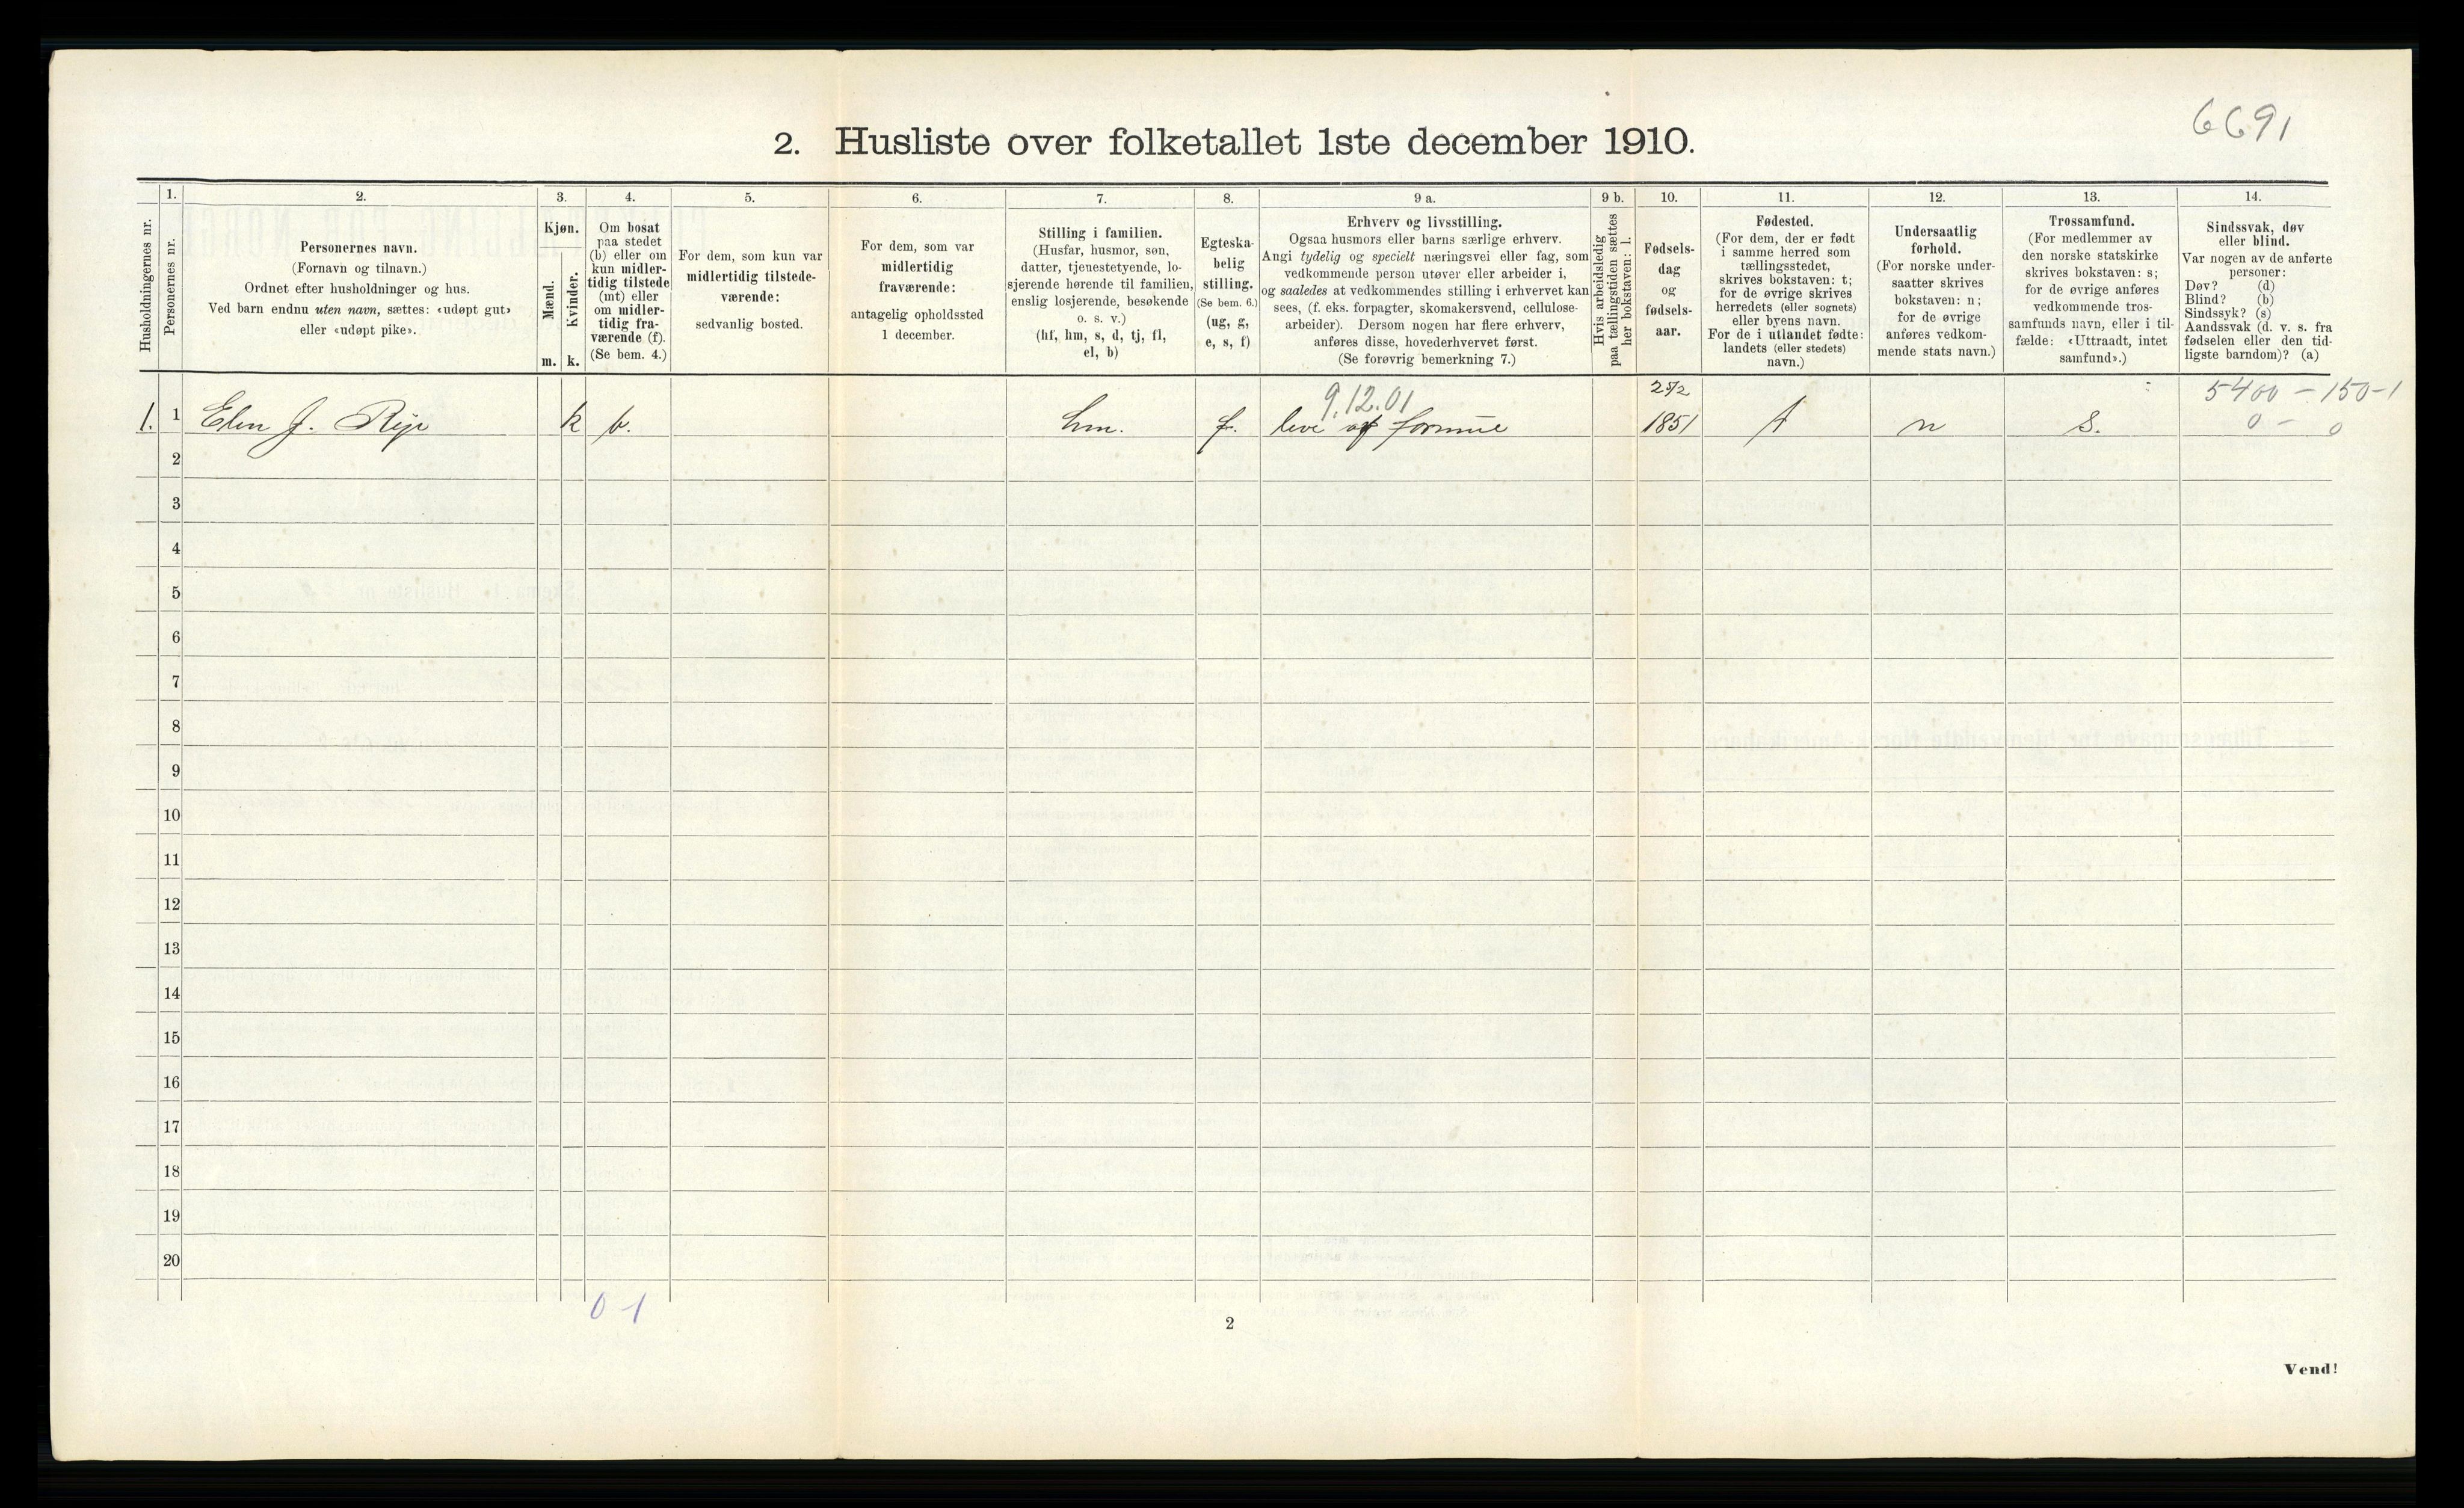 6691
2. Husliste over folketallet 1ste december 1910.
Husholdningernes nr.
1.
Personernes nr.
2.
Personernes navn.
(Fornavn og tilnavn.)
Ordnet efter husholdninger og hus.
Ved barn endnu uten navn, sættes: «udøpt gut»
eller «udøpt pike».
3.
Kjøn.
Mænd.
Kvinder.
m. k.
4.
Om bosat
paa stedet
(b) eller om
kun midler-
tidig tilstede
(mt) eller
om midler-
tidig fra-
værende (f).
(Se bem. 4.)
5.
For dem, som kun var
midlertidig tilstede-
værende:
sedvanlig bosted.
6.
For dem, som var
midlertidig
fraværende:
antagelig opholdssted
1 december.
7.
Stilling i familien.
(Husfar, husmor, søn,
datter, tjenestetyende, lo-
sjerende hørende til familien,
enslig losjerende, besøkende
o. s. v.)
(hf, hm, s, d, tj, fl,
el, b)
8.
Egteska-
belig
stilling.
(Se bem. 6.)
(ug, g,
e, s, f)
9 a.
Erhverv og livsstilling.
Ogsaa husmors eller barns særlige erhverv.
Angi tydelig og specielt næringsvei eller fag, som
vedkommende person utøver eller arbeider i,
og saaledes at vedkommendes stilling i erhvervet kan
sees, (f. eks. forpagter, skomakersvend, cellulose-
arbeider). Dersom nogen har flere erhverv,
anføres disse, hovederhvervet først.
(Se forøvrig bemerkning 7.)
9 b.
Hvis arbeidsledig
paa tællingstiden sættes
her bokstaven: l.
10.
Fødsels-
dag
og
fødsels-
aar.
11.
Fødested.
(For dem, der er født
i samme herred som
tællingsstedet,
skrives bokstaven: t;
for de øvrige skrives
herredets (eller sognets)
eller byens navn.
For de i utlandet fødte:
landets (eller stedets)
navn.)
12.
Undersaatlig
forhold.
(For norske under-
saatter skrives
bokstaven: n;
for de øvrige
anføres vedkom-
mende stats navn.)
13.
Trossamfund.
(For medlemmer av
den norske statskirke
skrives bokstaven: s;
for de øvrige anføres
vedkommende tros-
samfunds navn, eller i til-
fælde: «Uttraadt, intet
samfund».)
14.
Sindssvak, døv
eller blind.
Var nogen av de anførte
personer:
Døv? (d)
Blind? (b)
Sindssyk? (s)
Aandssvak (d. v. s. fra
fødselen eller den tid-
ligste barndom)? (a)
9.12.01 25/2 5400 - 150-1
1. 1 Elen J. k b. hm. f. leve af formue 1851 t n s. 0 - 0
2
3
4
5
6
7
8
9
10
11
12
13
14
15
16
17
18
19
20
0-1
2
Vend!